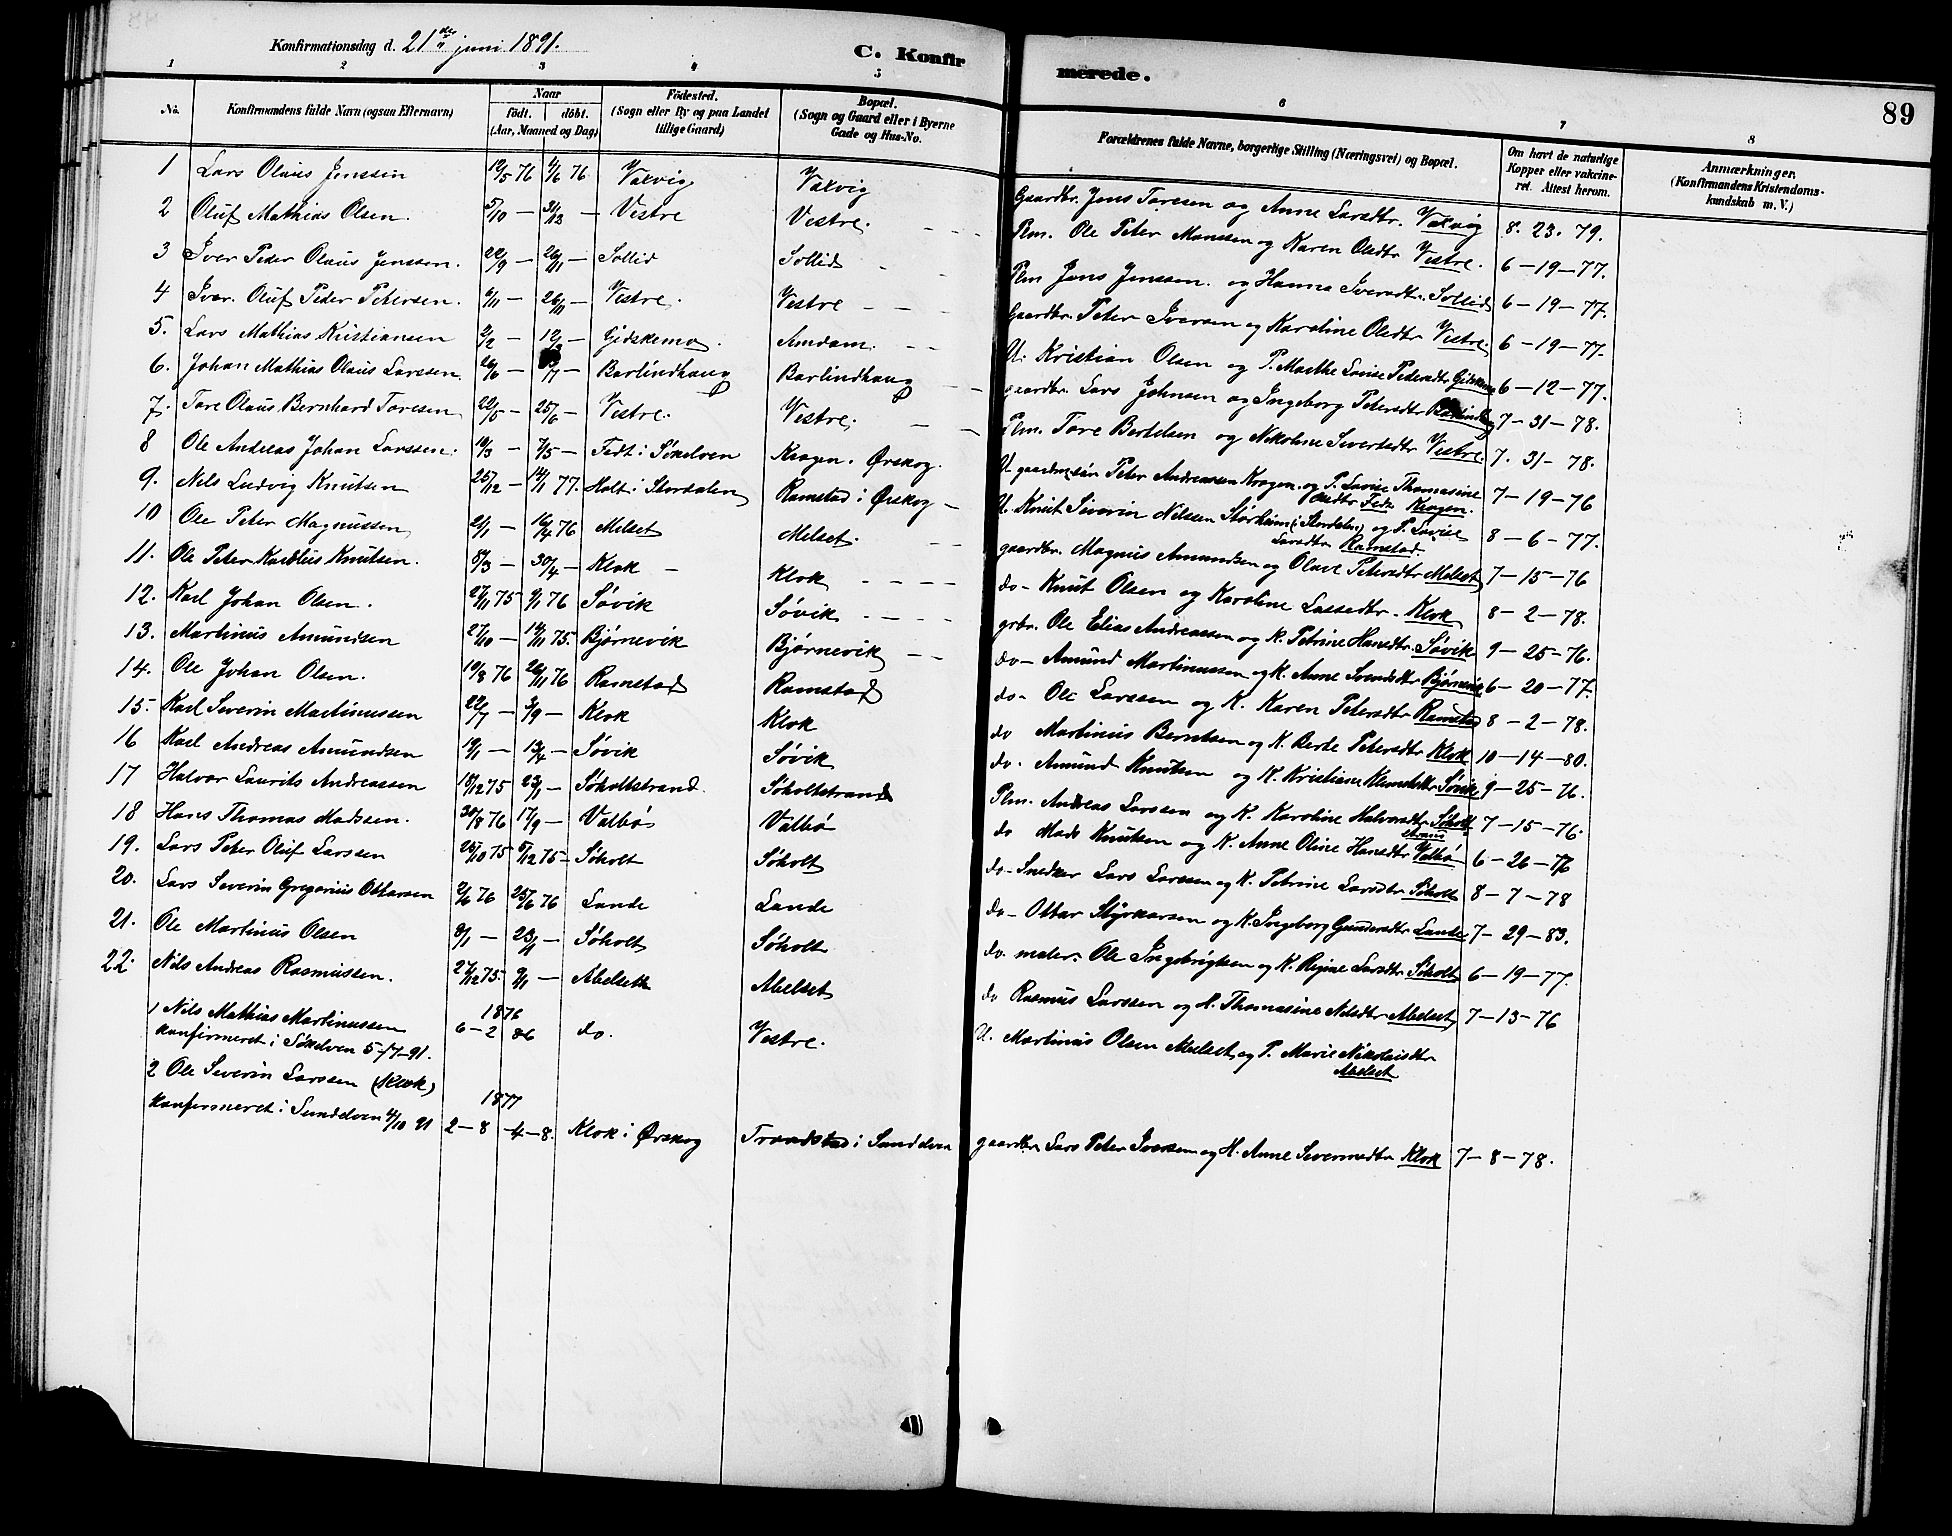 Konfirmationsdag d. 21de juni 1891.
C. Konfirmerede.
89
1 2 3 4 5 6 7 8
No. Konfirmandens fulde Navn (ogsaa Efternavn) Naar födt. döbt. (Aar, Maaned og Dag) Födested. (Sogn eller By og paa Landet tillige Gaard) Bopæl. (Sogn og Gaard eller i Byerne Gade og Hus-No. Forældrenes fulde Navne, borgerlige Stilling (Næringsvei) og Bopæl. Om havt de naturlige Kopper eller vakcineret. Attest herom. Anmærkninger. (Konfirmandens Kristendomskundskab m. V.)
1 Lars Olaus Jenssen 19/5 76 1/6 76 Valvig Valvig Gaardbr. Jens Toresen og Anne Larsdtr. Valvig 8. 23. 79.
2 Oluf Mathias Olsen. 5/10 — 31/12 — Vestre Vestre. Plm. Ole Peter Monssen og Karen Olsdtr Vestre. 6-19-77.
3 Iver Peder Olaus Jenssen. 22/9 — 26/11 — Sollid Sollid Plm Jens Jenssen. og Hanna Iversdtr. Sollid 6-19-77.
4 Iver. Oluf Peder Petersen. 6/11 — 26/11 — Vestre. Vestre Gaardbr. Peter Iversen og Karoline Olsdtr Vestre. 6-19-77.
5. Lars Mathias Kristiansen 2/2 — 12/3 — Gidskemo. Amdam. U. Kristian Olsen og P. Marthe Lovise Pedersdtr Gidskemo 6-12-77.
6. Johan Mathias Olaus Larssen. 26/6 — Barlindhaug Barlindhaug gaardbr. Lars Johnsen og Ingeborg Petersdtr Barlindhg 7-31-78.
7. Tore Olaus Bernhard Toresen 22/5 — 25/6 — Vestre. Vestre. Plm. Tore Bertelsen og Nikoline Sivertsdtr Vestre. 7. 31-78.
8 Ole Andreas Johan Larssen. 19/3 — 7/5 — Fedt i Søkelven Kragen. Ørskog. U. gaardmesön Peter Andreassen Kragen og P. Lovise Thomasine Olsdtr Fedt Kragen. 7-19-76
9. Nils Ludvig Knutsen 25/12 — 14/1 77. Holt i Stordalen Ramstad i Ørskog U. Knut Severin Nilssen Storheim (i Stordalen) og P. Lovise Larsdtr Ramstad. 8-6-77.
10 Ole Peter Magnussen 2/1 — 16/4 76 Melset Melset. gaardbr. Magnus Amundsen og Olave Petersdtr Melset 7-15-76
11. Ole Peter Kardelius Knutsen. 8/3 — 30/4 — Klok Klok do- Knut Olsen og Karoline Lassedtr. Klok 8-2-78.
12. Karl Johan Olsen. 27/11 75 9/1 76 Søvik Søvik grbr. Ole Elias Andreassen og K. Petrine Hansdtr. Søvik 9-25-76.
13. Martinus Amundsen 27/10 — 14/11 75. Bjørnevik Bjørnevik do- Amund Martinussen og K. Anne Svendsdtr Bjørnevik 6-20-77.
14. Ole Johan Olsen. 19/8 76 26/11 76 Ramstad Ramstad do- Ole Larssen og K. Karen Petersdtr Ramstad 8-2-78.
15. Karl Severin Martinussen 22/7 — 3/9 — Klok Klok do Martinus Berntsen og K. Berte Petersdtr Klok 10-14-80.
16 Karl Andreas Amundsen 19/1 — 13/4 — Søvik Søvik do. Amund Knutsen og K. Kristiane Klemetsdtr Søvik 9-25-76.
17 Halvar Laurits Andreassen 18/12 75 23/1 — Søholtstrand. Søholtstrand Plm. Andreas Larssen og K. Karoline Halvorsdtr Søholtstrand 7-15-76.
18 Hans Thomas Madssen. 30/8 76 17/9 — Valbø Valbø do Mads Knutsen og K. Anne Oline Hansdtr Valbø 6-26-76
19. Lars Peter Oluf Larssen 25/10 75 5/12 75 Søholt Søholt do- Snedker Lars Larssen og K. Petrine Larsdtr Søholt 8-7-78
20. Lars Severin Gregorius Ottarsen 2/6 76 25/6 76 Lande Lande do- Ottar Styrkarsen og K. Ingeborg Gundersdtr Lande 7-29-83.
21. Ole Martinus Olsen 8/1 — 23/4 — Søholt Søholt do. maler. Ole Ingebrigtsen og K. Regine Larsdtr Søholt 6-19-77.
22. Nils Andreas Rasmussen. 27/12 75. 9/1 — Abelset Abelset do Rasmus Larssen og K. Thomasine Nilsdtr Abelset 7-13-76
1 Nils Mathias Martinussen 1876
konfirmeret i Søkelven 5-/7-91. 6-2 do. Vestre. U. Martinus Olsen Abelset og P. Marie Nikolaisdtr Abelset
2 Ole Severin Larssen (Klok) 1877
konfirmeret i Sundelven 4/10 91 2-8 -4-8. Klok i Ørskog Trandstad i Sundelven gaardbr. Lars Peter Iversen og K. Anne Severinsdtr Klok 7-8-78.